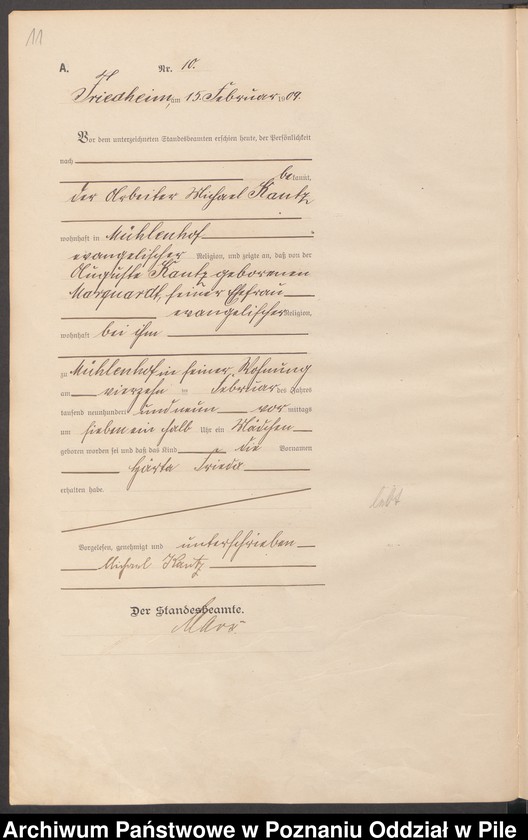 11
A.
Nr. 10.
Friedheim, am 15. Februar 1909.
Vor dem unterzeichneten Standesbeamten erschien heute, der Persönlichkeit
nach
bekannt,
der Arbeiter Michael Kantz
wohnhaft in Mühlenhof
evangelischer Religion, und zeigte an, daß von der
Auguste Kantz geborenen
Marquardt, seiner Ehefrau
evangelischer Religion,
wohnhaft bei ihm
zu Mühlenhof in seiner Wohnung
am vierzehn ten Februar des Jahres
tausend neunhundert und neun vor mittags
um sieben ein halb Uhr ein Mädchen
geboren worden sei und daß das Kind die Vornamen
Frieda
erhalten habe.
lebt
Vorgelesen, genehmigt und unterschrieben
Michael Kantz
Der Standesbeamte.
Archiwum Państwowe w Poznaniu Oddział w Pile